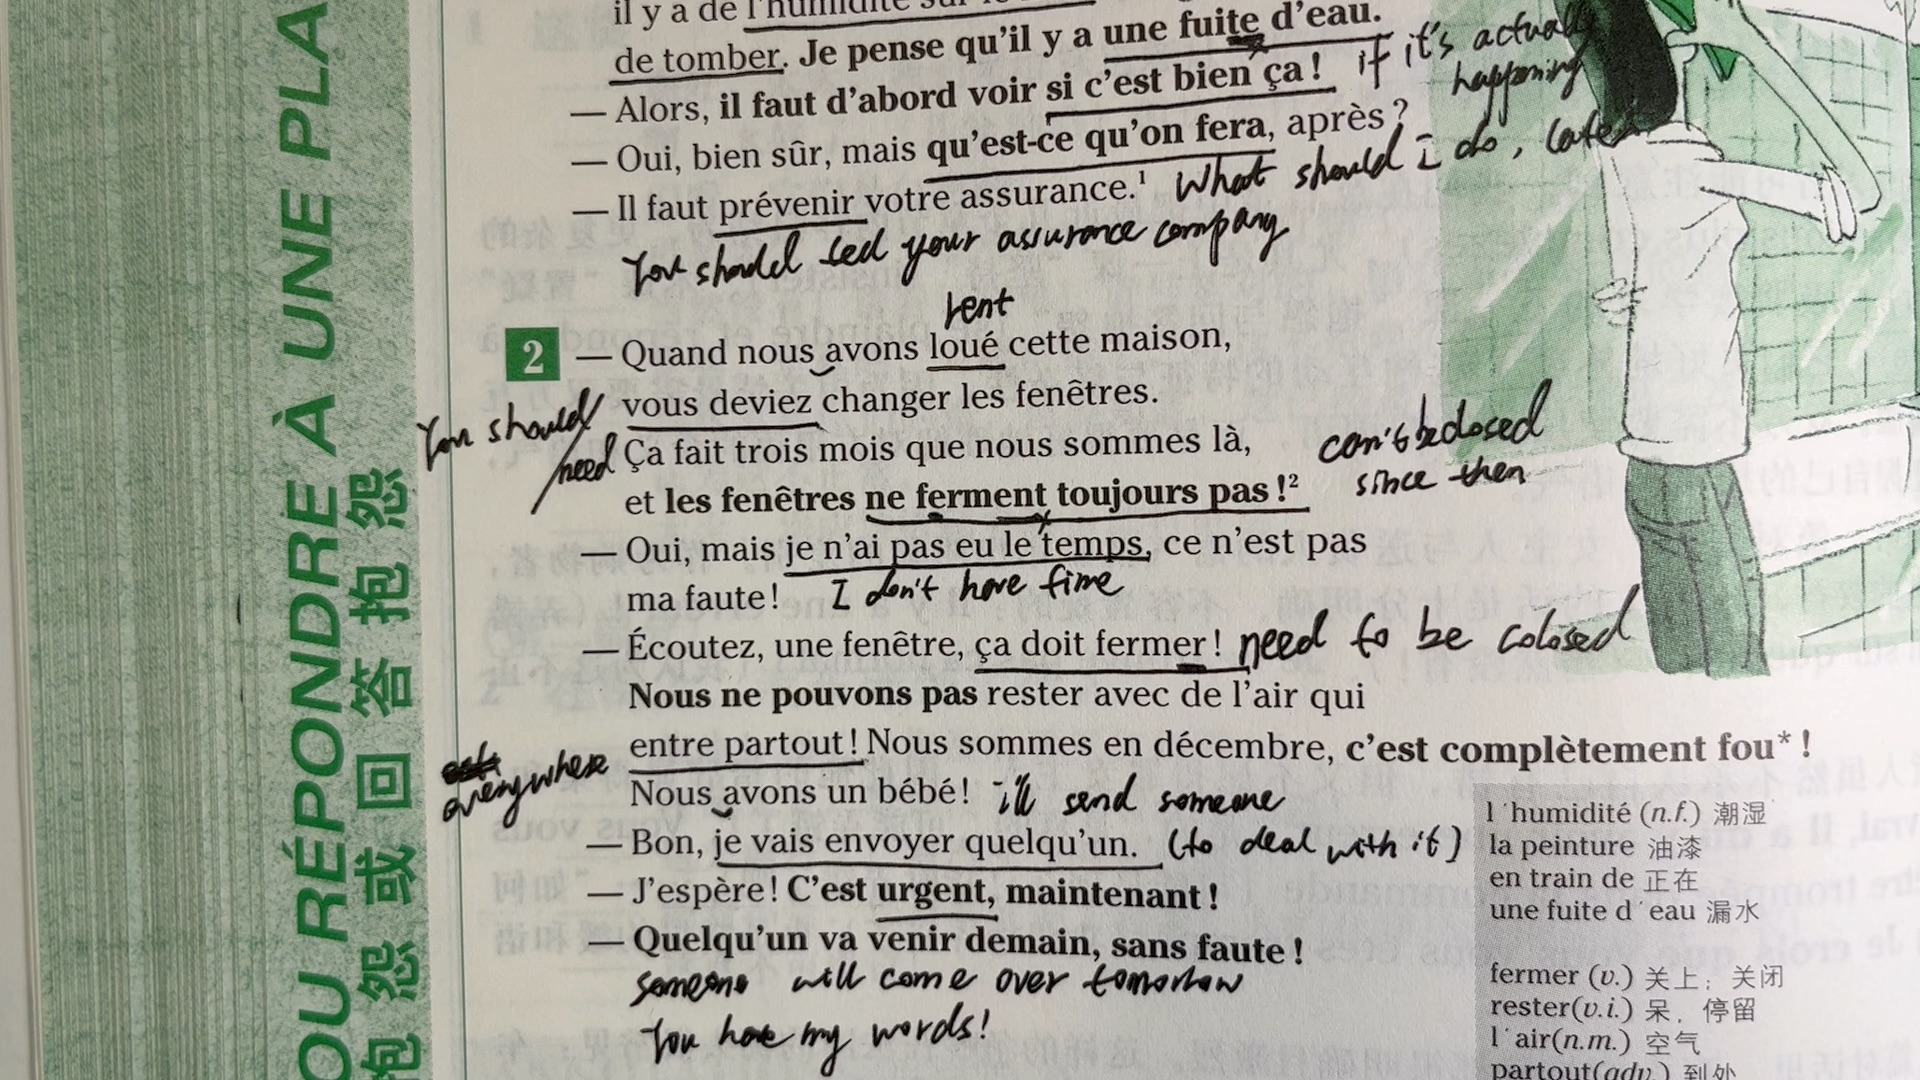 il y a de l'humidité sur
de tomber. Je pense qu'il y a une fuite d'eau.
if it's actually
happening
— Alors, il faut d'abord voir si c'est bien ça !
— Oui, bien sûr, mais qu'est-ce qu'on fera, après ?
What should I do, later
— Il faut prévenir votre assurance.¹
You should your assurance company
rent
2 — Quand nous avons loué cette maison,
vous deviez changer les fenêtres.
You should/
need
Ça fait trois mois que nous sommes là,
can't be closed
since then
et les fenêtres ne ferment toujours pas !²
— Oui, mais je n'ai pas eu le temps, ce n'est pas
ma faute !
I don't have time
— Écoutez, une fenêtre, ça doit fermer !
need to be colosed
Nous ne pouvons pas rester avec de l'air qui
entre partout ! Nous sommes en décembre, c'est complètement fou* !
everywhere
Nous avons un bébé !
i'll send someone
— Bon, je vais envoyer quelqu'un.
(to deal with it)
— J'espère ! C'est urgent, maintenant !
— Quelqu'un va venir demain, sans faute !
someone will come over tomorrow
You have my words!
l'humidité (n.f.) 潮湿
la peinture 油漆
en train de 正在
une fuite d'eau 漏水
fermer (v.) 关上；关闭
rester(v.i.) 呆，停留
l'air(n.m.) 空气
partout(adv.) 到处
OU RÉPONDRE À UNE PLA
抱怨或回答抱怨